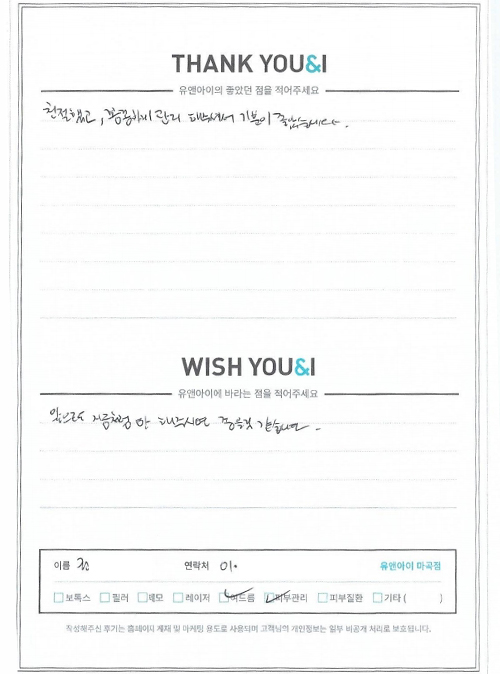 THANK YOU&I
유앤아이의 좋았던 점을 적어주세요
친절했고, 꼼꼼하게 관리 해주셔서 기분이 좋았습니다.
WISH YOU&I
유앤아이에 바라는 점을 적어주세요
앞으로도 지금처럼만 해주시면 좋을것 같습니다.
이름 연락처 01 유앤아이 마곡점
보톡스 필러 제모 레이저 여드름 피부관리 피부질환 기타 ( )
작성해주신 후기는 홈페이지 게재 및 마케팅 용도로 사용되며 고객님의 개인정보는 일부 비공개 처리로 보호됩니다.